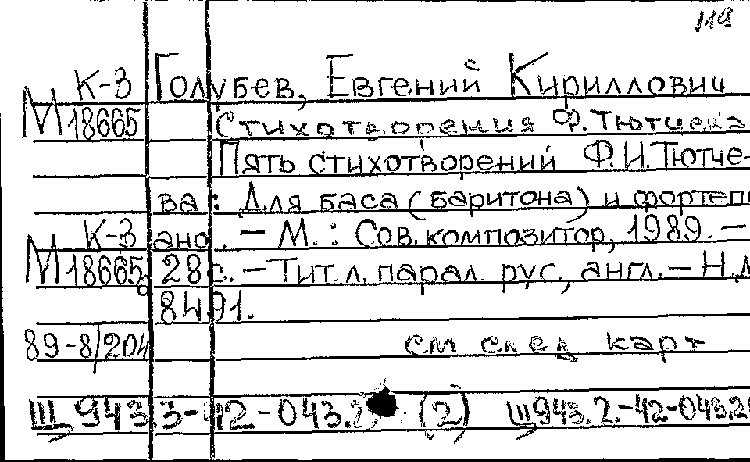 118
К-3 Голубев, Евгений Кириллович
М 18665 Стихотворения Ф. Тютчева
Пять стихотворений Ф.И. Тютче-
ва : Для баса (баритона) и фортепи
К-3 ано. - М. : Сов. композитор, 1989. -
М 18665а 28 с. - Тит. л. парал. рус., англ. - Н.Д
8491.
89-8/204 см след карт
Щ943.3-42-043.2 (2) Щ943.2-42-043.2